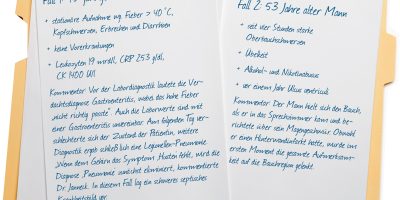 stationäre Aufnahme wg. Fieber > 40°C,
Kopfschmerzen, Erbrechen und Diarrhöen
keine Vorerkrankungen
Leukozyten 19 wrdl, CRP 253 g/dl,
CK 1400 U/l
Kommentar: Vor der Labordiagnostik lautete die Ver-
dachtsdiagnose Gastroenteritis, wobei das hohe Fieber
„nicht richtig passte“. Auch die Laborwerte sind mit
einer Gastroenteritis vereinbar. Am folgenden Tag ver-
schlechterte sich der Zustand der Patientin, weitere
Diagnostik ergab schließlich eine Legionellen-Pneumonie.
„Wenn dem Gehirn das Symptom Husten fehlt, wird die
Diagnose Pneumonie zunächst eliminiert, kommentierte
Dr. Jameik. In diesem Fall lag ein schweres septisches
Krankheitsbild vor.
Fall 2: 53 Jahre alter Mann
seit vier Stunden starke
Oberbauchschmerzen
Übelkeit
Alkohol- und Nikotinabusus
vor einem Jahr Ulcus ventriculi
Kommentar: Der Mann hielt sich den Bauch,
als er in das Sprechzimmer kam und be-
richtete sofort sein Magengeschwür. Obwohl
er einen Hinterwandinfarkt hatte, wurde im
ersten Moment die gesamte Aufmerksam-
keit auf die Bauchregion gelenkt.